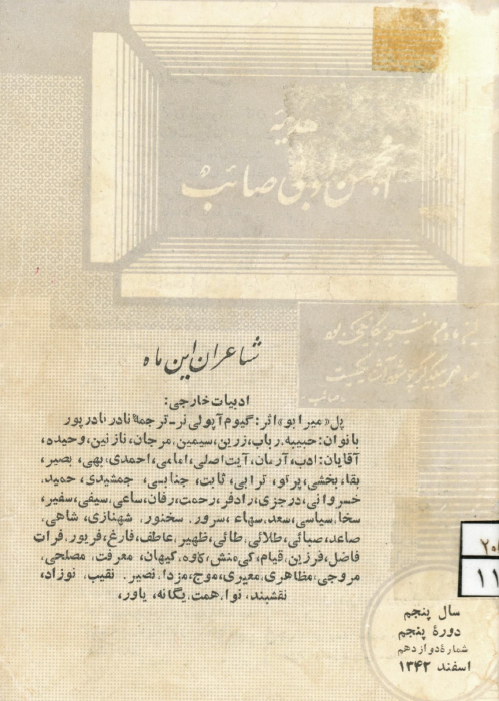 هدیهٔ
انجمن ادبی صائب
شاعران این ماه
ادبیات خارجی:
پل «میرابو» اثر: گیوم آپولی نر_ ترجمهٔ نادر نادرپور
بانوان: حبیبه، رباب، زرین، سیمین، مرجان، نازنین، وحیده،
آقایان: ادب، آرمان، آیت اصلی، امامی، احمدی، بهی، بصیر،
بقا، بخشی، پرتو، ترابی، ثابت، جنابی، جمشیدی، حمید،
خسروانی، درجزی، رادفر، رحمت، رفان، ساعی، سیفی، سفیر،
سخا، سیاسی، سعد، سهاء، سرور، سخنور، شهنازی، شاهی،
صاعد، صبائی، طلائی، طائی، ظهیر، عاطف، فارغ، فریور، فرات
فاضل، فرزین، قیام، کی منش، کاوه، کیهان، معرفت، مصلحی،
مروجی، مظاهری، معیری، موج، مزدا، نصیر، نقیب، نوزاد،
نقشبند، نوا، همت، یگانه، یاور،
سال پنجم
دورهٔ پنجم
شمارهٔ دوازدهم
اسفند ۱۳۴۲
۱۱